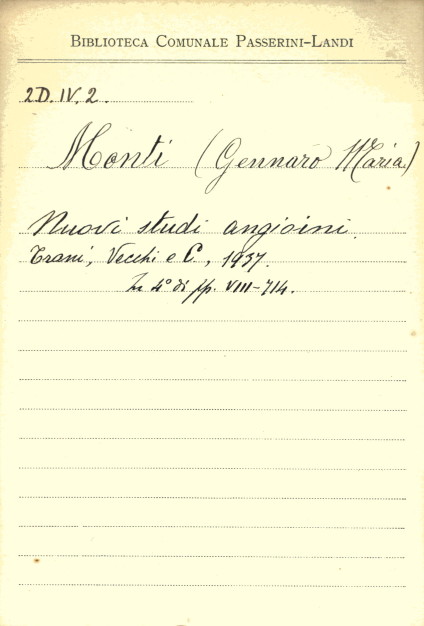 BIBLIOTECA COMUNALE PASSERINI-LANDI
2D.IV.2.
Monti (Gennaro Maria)
Nuovi studi angioini.
Trani, Vecchi e C., 1937.
In 4° di pp. VIII-714.